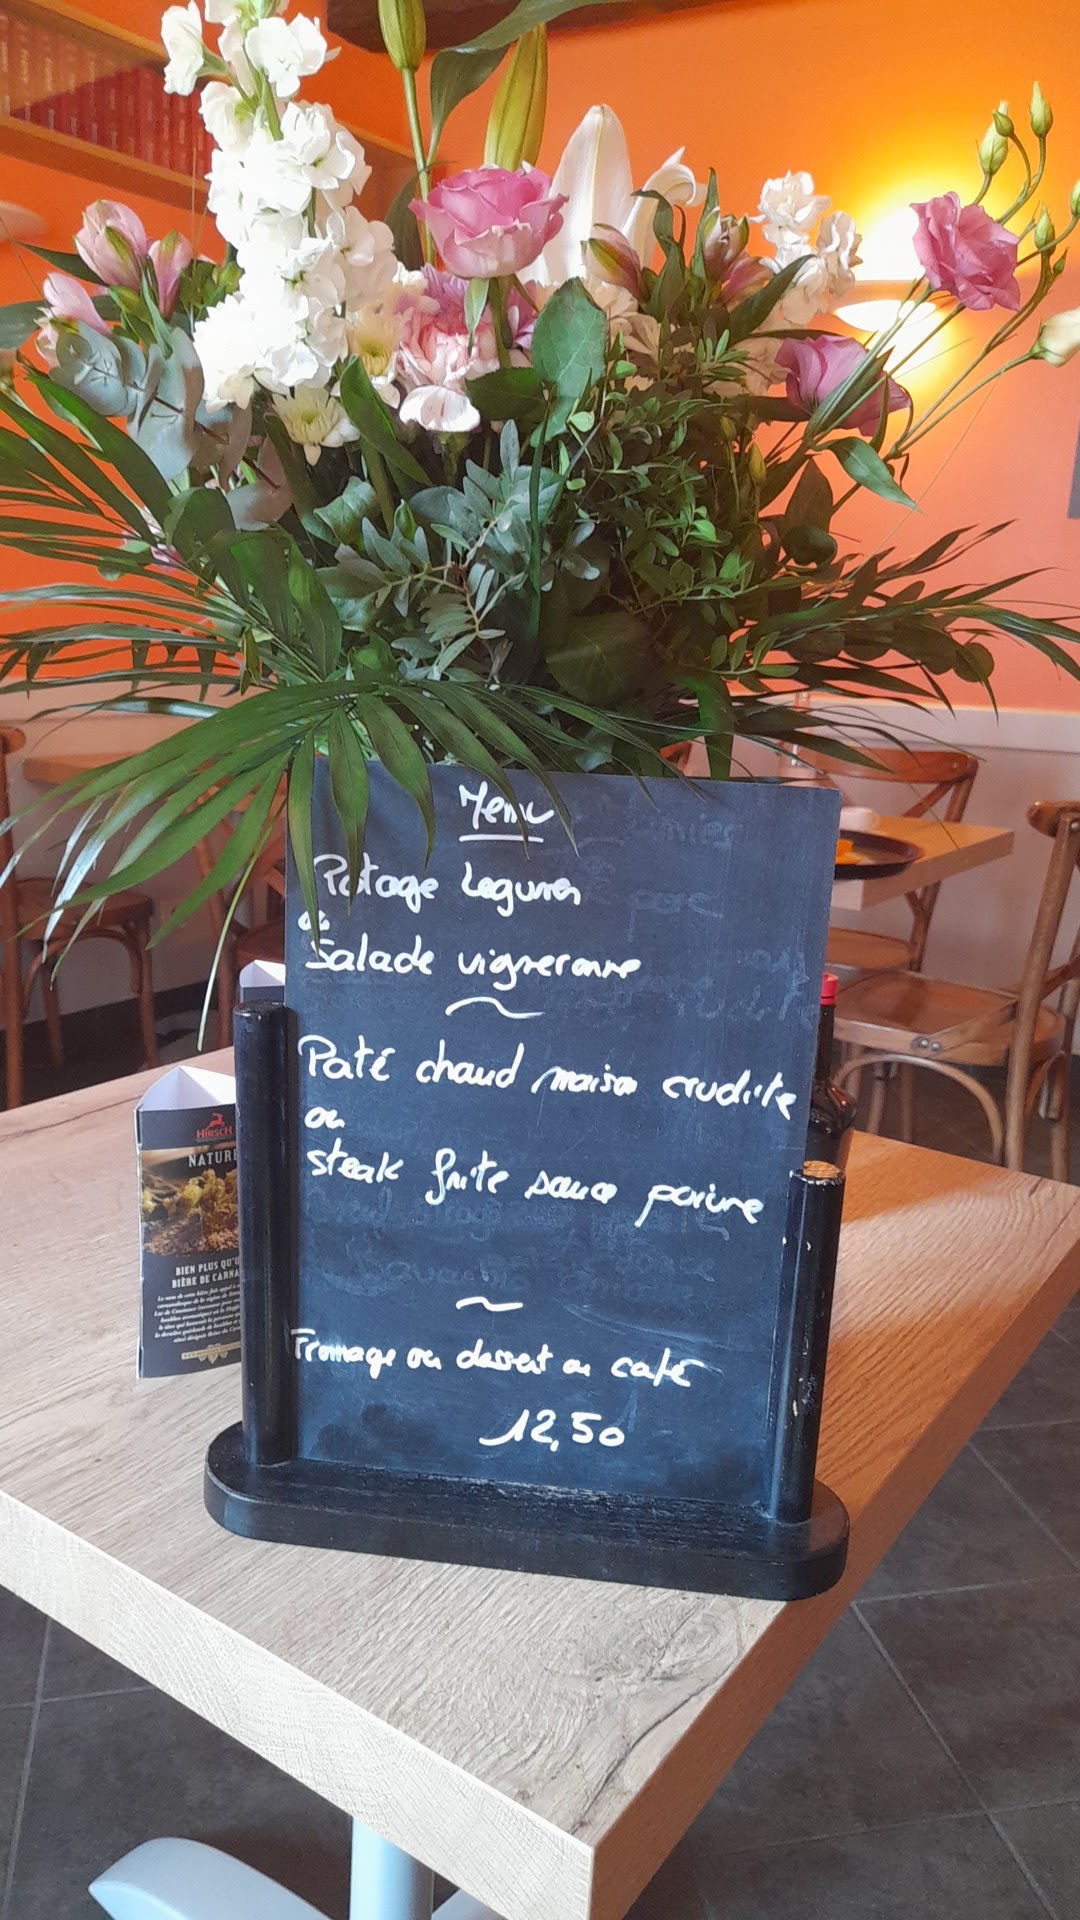 Menu
Potage Legumes
ou
Salade vigneronne
Paté chaud maison crudite
ou
steak frite sauce poivre
Fromage ou dessert ou café
12,50
HIRSCH
NATURE
BIEN PLUS QU'U
BIÈRE DE CARNA